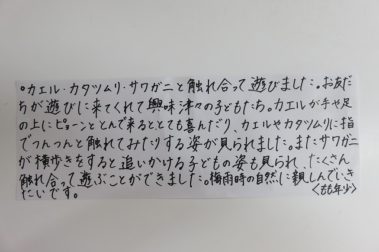 ○カエル・カタツムリ・サワガニと触れ合って遊びました。お友だ
ちが遊びに来てくれて興味津々の子どもたち。カエルが手や足
の上にピョーンととんで来るととても喜んだり、カエルやカタツムリに指
でつんつんと触れてみたりする姿が見られました。またサワガニ
が横歩きをすると追いかける子どもの姿も見られ、たくさん
触れ合って遊ぶことができました。梅雨時の自然に親しんでいき
たいです。
＜もも年少＞